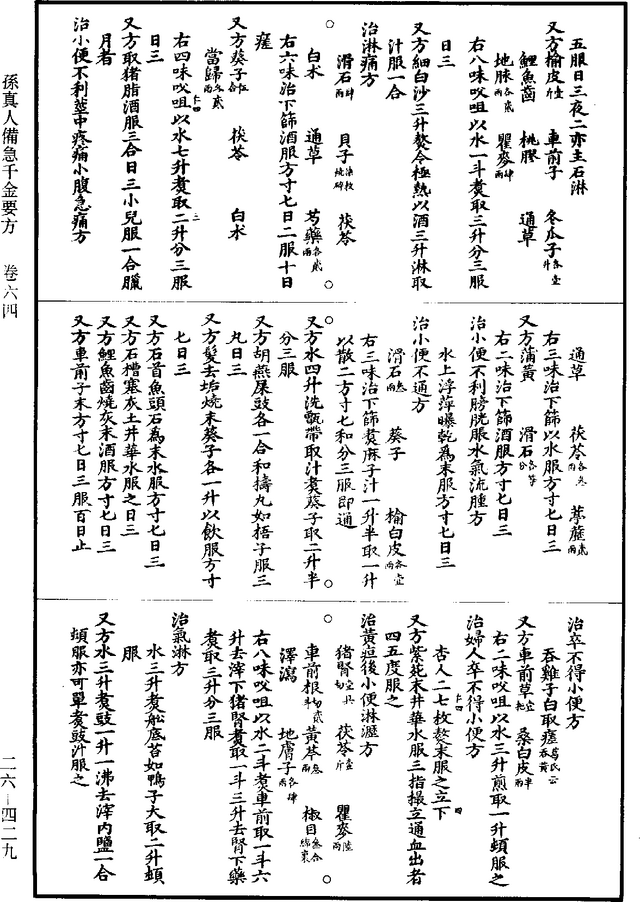 五服日三夜二亦主石淋
又方榆皮 車前子 冬瓜子各壹升
鯉魚齒 桃膠 通草
地脉各貳兩 瞿麥肆兩
右八味㕮咀以水一斗煑取三升分三服
日三
又方細白沙三升熬令極熱以酒三升淋取
汁服一合
治淋痛方
滑石肆兩 貝子柒枚燒碎 茯苓
白术 通草 芍藥各貳兩
右六味治下篩酒服方寸七日二服十日
瘥
又方葵子 茯苓 白术
當歸各貳兩
右四味㕮咀以水七升煑取二升分三服
日三
又方取猪脂酒服三合日三小兒服一合臘
月者
治小便不利莖中疼痛小腹急痛方
通草 茯苓各叁兩 葶藶貳兩
右三味治下篩以水服方寸七日三
又方蒲黃 滑石各等分
右二味治下篩酒服方寸七日三
治小便不利膀胱脹水氣流腫方
水上浮萍曝乾爲末服方寸七日三
治小便不通方
滑石叁兩 葵子 榆白皮各壹兩
右三味治下篩煑麻子汁一升半取一升
以散二方寸七和分三服即通
又方水四升洗甑帶取汁煑葵子取二升半
分三服
又方胡燕屎豉各一合和擣丸如梧子服三
丸日三
又方髮去垢燒末葵子各一升以飲服方寸
七日三
又方石首魚頭石爲末水服方寸七日三
又方石槽塞灰土井華水服之日三
又方鯉魚齒燒灰末酒服方寸七日三
又方車前子末方寸七日三服百日止
治卒不得小便方
吞雞子白取瘥葛氏云吞黃
又方車前草壹把 桑白皮半兩
右二味㕮咀以水三升煎取一升頓服之
治婦人卒不得小便方
杏人二七枚熬末服之立下
又方紫菀末井華水服三指撮立通血出者
四五度服之
治黃疸後小便淋瀝方
猪腎壹具 茯苓壹斤 瞿麥陸兩
車前根 黃芩叁兩 椒目叁合綿裹
澤瀉 地膚子各肆兩
右八味㕮咀以水二斗煑車前取一斗六
升去滓下猪腎煑取一斗三升去腎下藥
煑取三升分三服
治氣淋方
水三升煑舩底苔如鴨子大取二升頓
服
又方水三升煑豉一升一沸去滓内鹽一合
頓服亦可單煑豉汁服之
孫真人備急千金要方 卷六四
二六-四二九